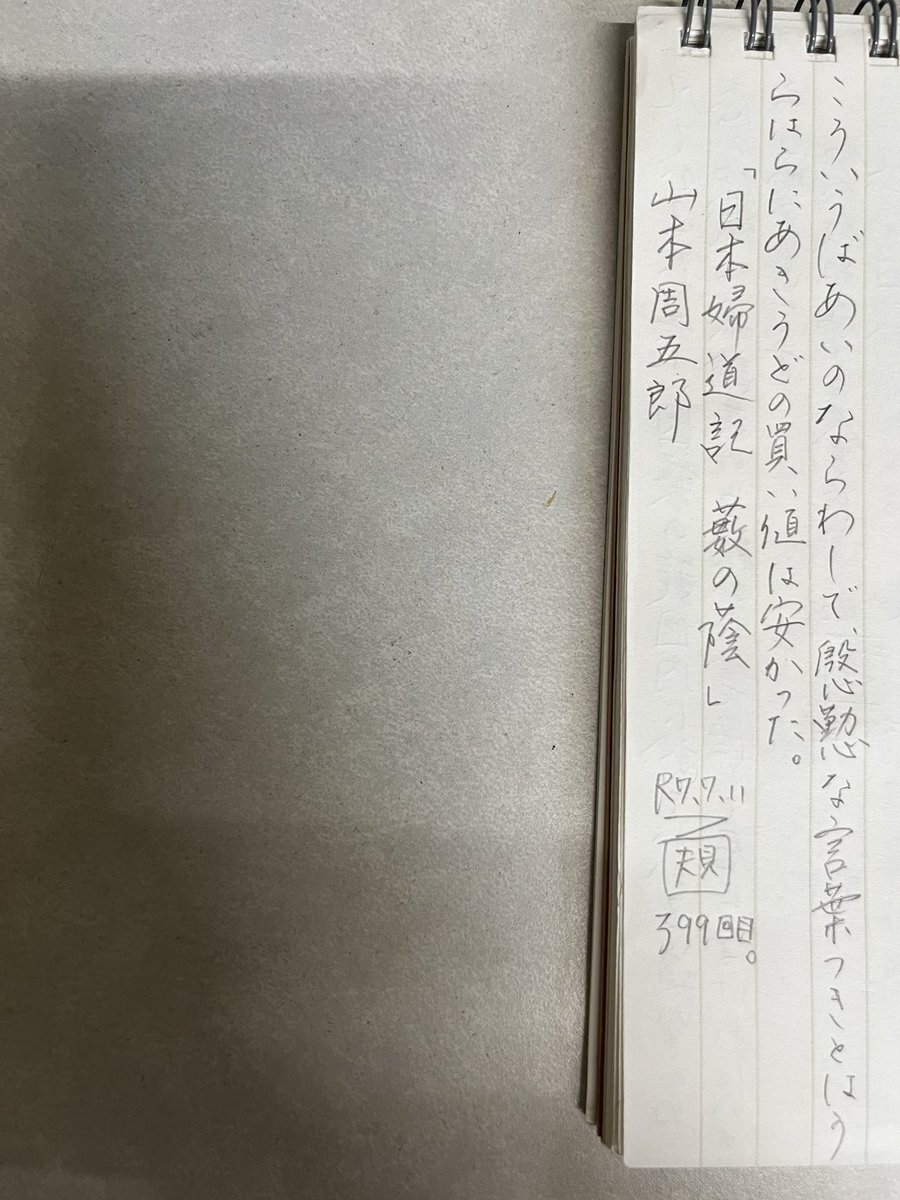 こういうばあいのならわしで、慇懃な言葉つきとはう
らはらにあきうどの買い値は安かった。
「日本婦道記 藪の蔭」
山本周五郎
R7.7.11
399回目。